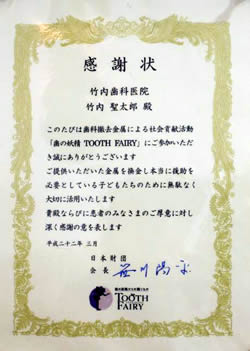 感謝状
竹内歯科医院
竹内 聖太郎 殿
このたびは歯科撤去金属による社会貢献活動
「歯の妖精 TOOTH FAIRY」にご参加いただ
き誠にありがとうございます
ご提供いただいた金属を換金し本当に援助を
必要としている子どもたちのために無駄なく
大切に活用いたします
貴院ならびに患者のみなさまのご厚意に対し
深く感謝の意を表します
平成二十二年 三月
日本財団
会長 笹川陽平
TOOTH
FAIRY